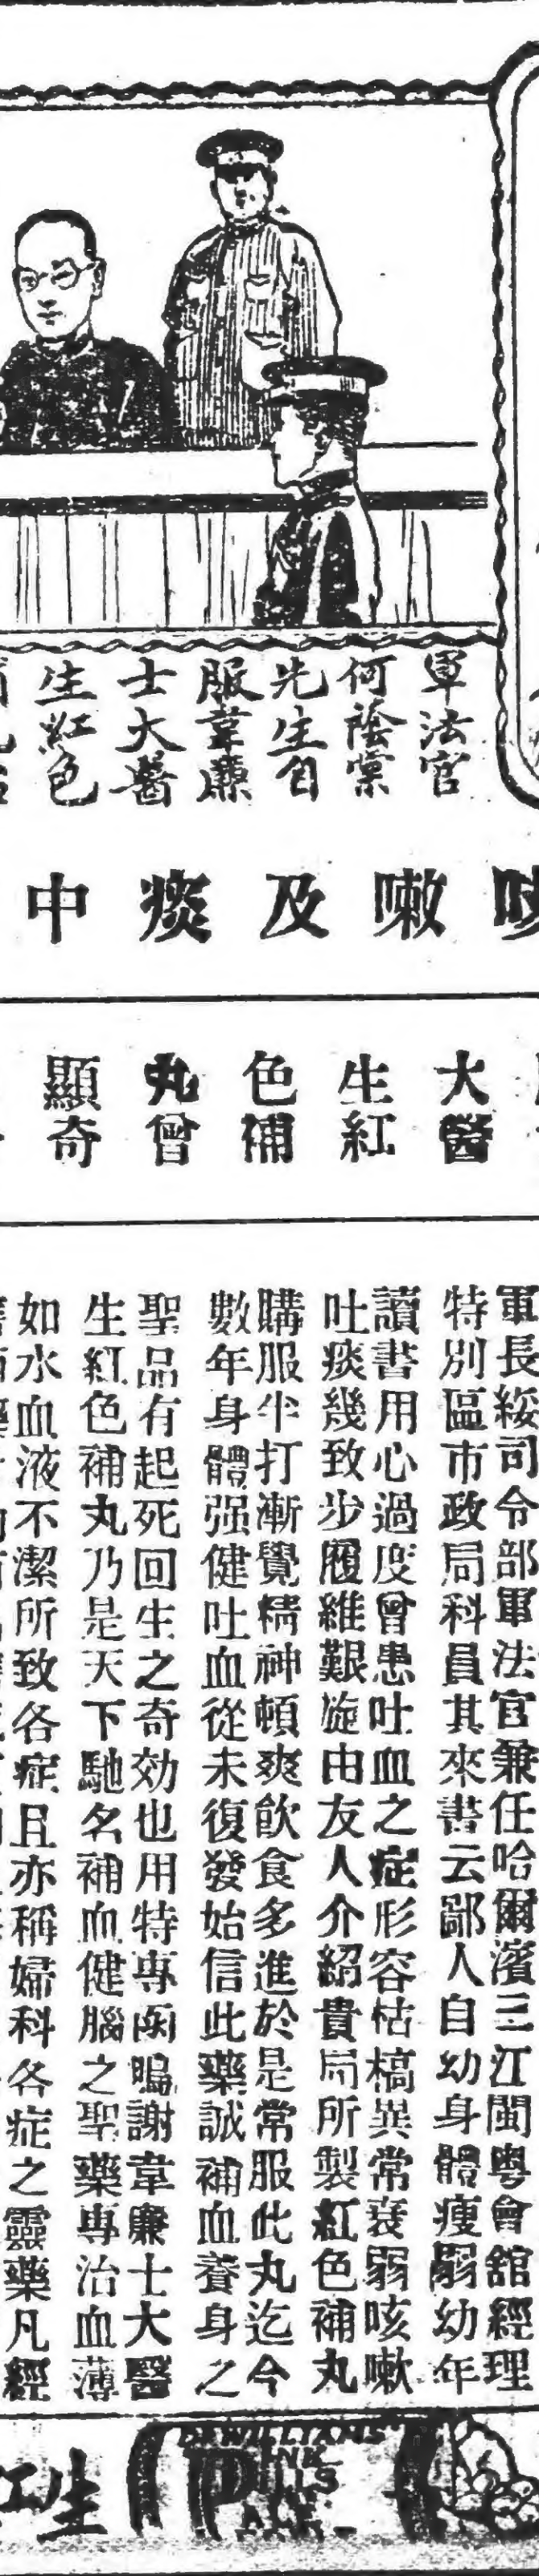 軍法官
何蔭棠
先生自
服韋廉
士大醫
生紅色
嗽及痰中
大醫
生紅
色補
丸曾
顯奇
軍長綏司令部軍法官兼任哈爾濱三江閩粵會舘經理
特別區市政局科員其來書云鄙人自幼身體瘦弱幼年
讀書用心過度曾患吐血之症形容枯槁異常衰弱咳嗽
吐痰幾致步履維艱旋由友人介紹貴局所製紅色補丸
購服半打漸覺精神頓爽飲食多進於是常服此丸迄今
數年身體强健吐血從未復發始信此藥誠補血養身之
聖品有起死回生之奇効也用特專函鳴謝韋廉士大醫
生紅色補丸乃是天下馳名補血健腦之聖藥專治血薄
如水血液不潔所致各症且亦稱婦科各症之靈藥凡經
DR WILLIAMS
PINK
PILLS
生